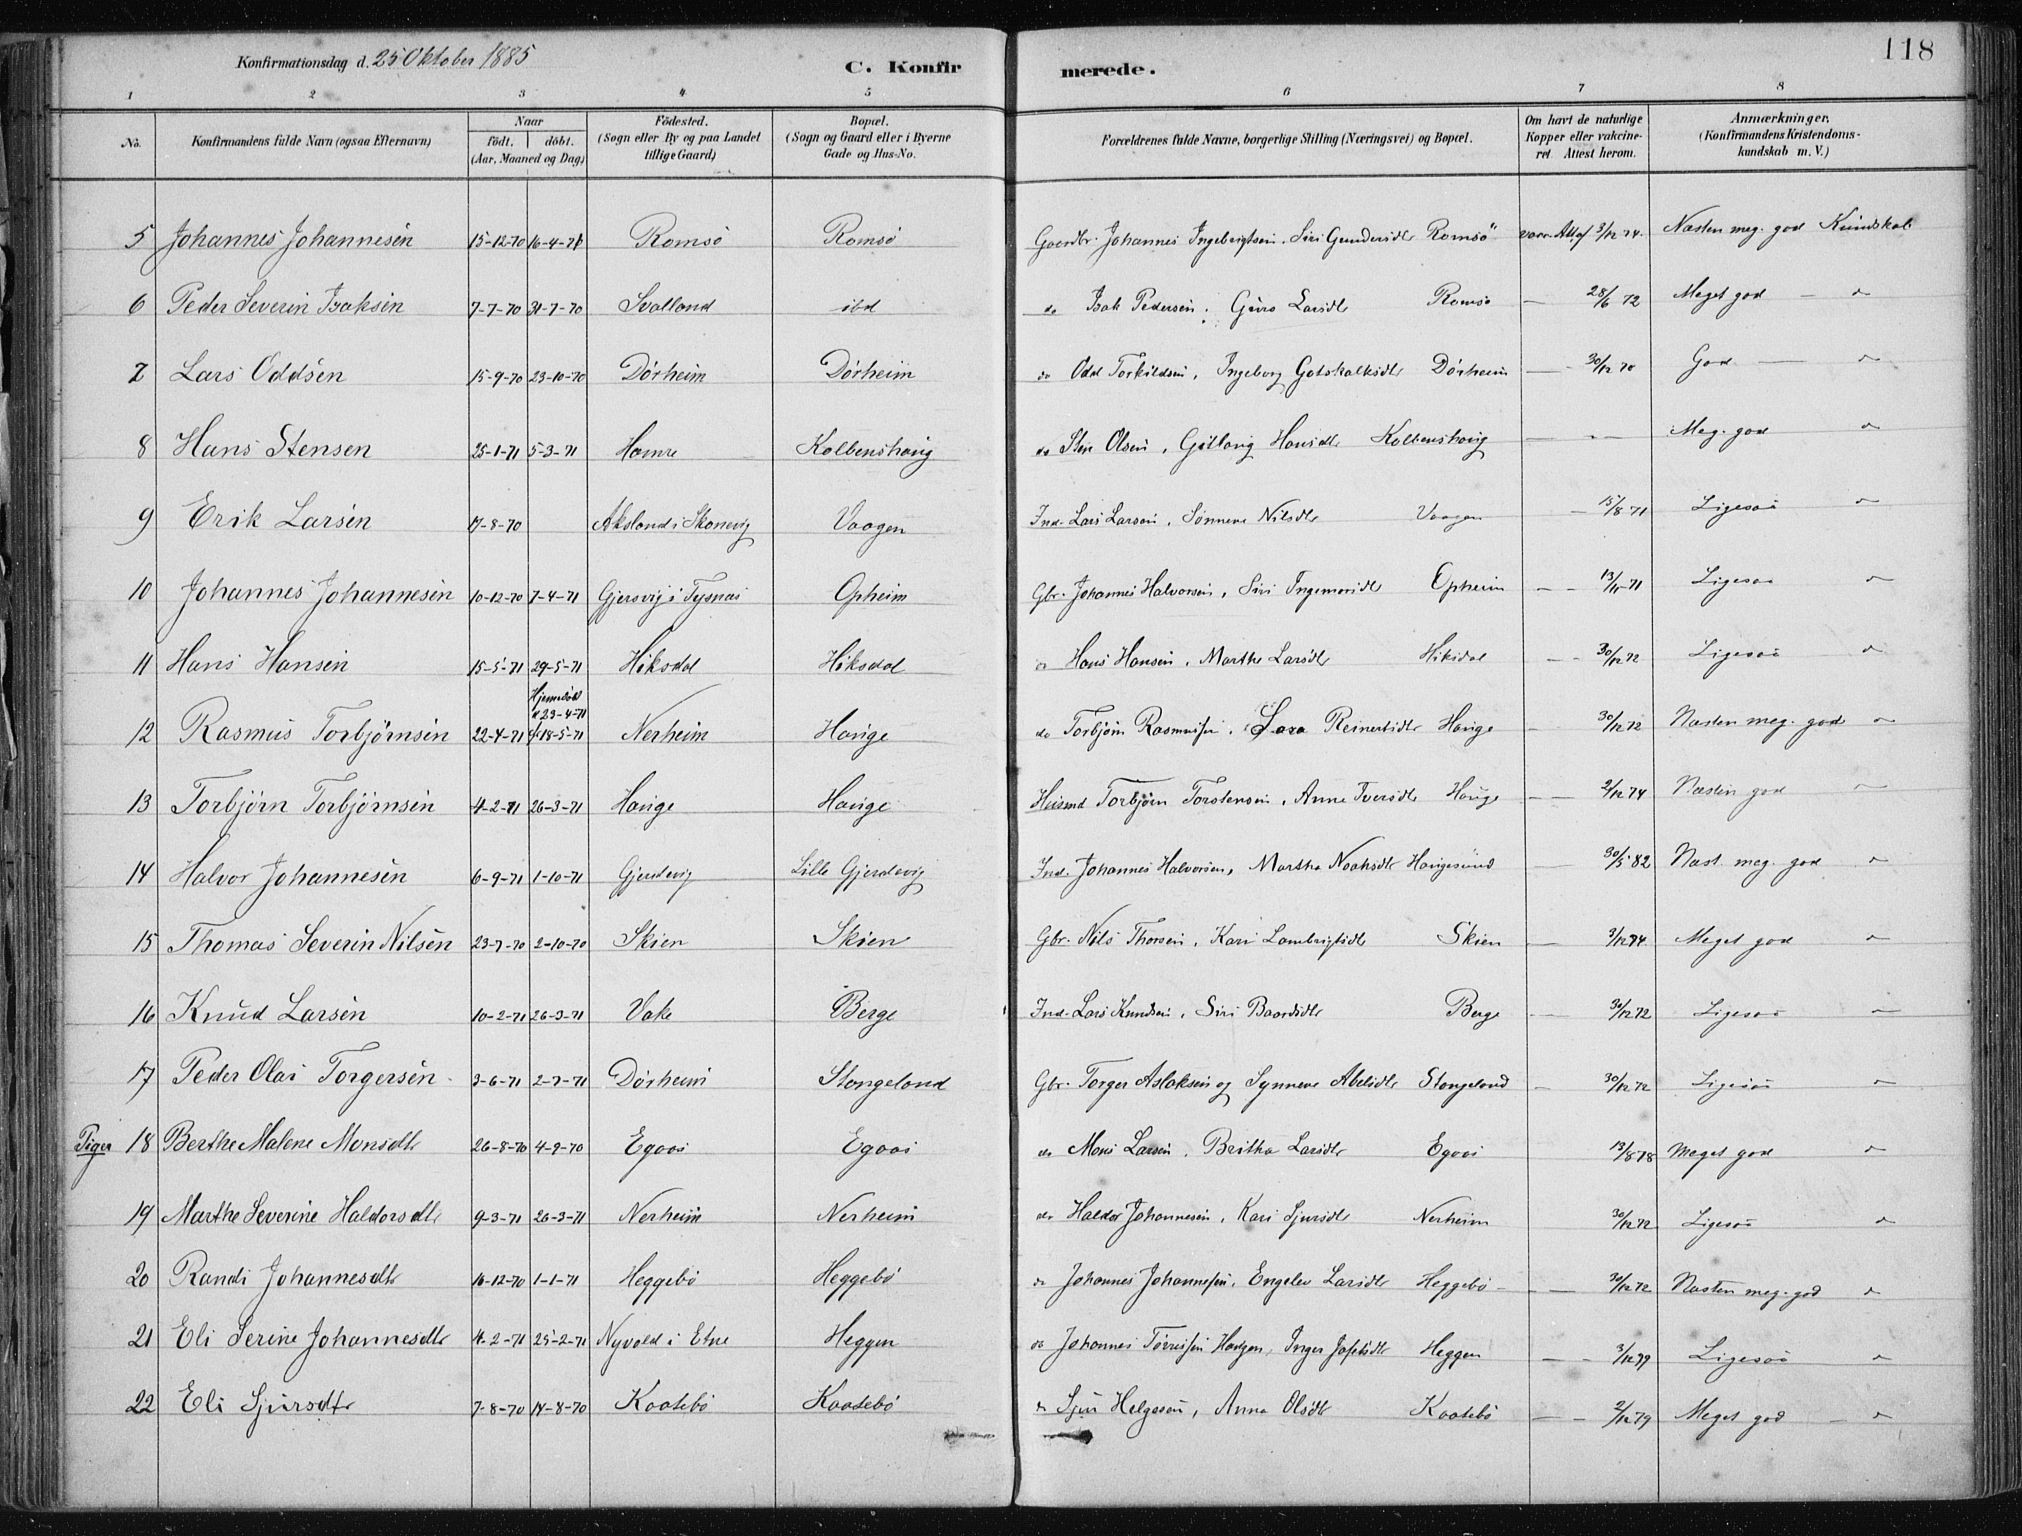 118
Konfirmationsdag d. 25 Oktober 1885
C. Konfirmerede.
1 2 3 4 5 6 7 8
No. Konfirmandens fulde Navn (ogsaa Efternavn) Naar født. døbt. (Aar, Maaned og Dag) Fødested. (Sogn eller By og paa Landet tillige Gaard) Bopæl. (Sogn og Gaard eller i Byerne Gade og Hus-No. Forældrenes fulde Navne, borgerlige Stilling (Næringsvei) og Bopæl. Om havt de naturlige Kopper eller vakcineret. Attest herom. Anmærkninger. (Konfirmandens Kristendomskundskab m. V.)
5 Johannes Johannesen 15-12-70 16-4-71 Romsø Romsø Gaardbr. Johannes Ingebrigtsen, Siri Gundersdtr Romsø vacc. Att. af 3/12 74. Næsten meg. god Kundskab
6 Peder Severin Isaksen 7-7-70 31-7-70 Svalland ibd do Isak Pedersen, Guro Larsdtr Romsø — 28/6 72 Meget god — "
7 Lars Oddsen 15-9-70 23-10-70 Dørheim Dørheim do Odd Torkildsen, Ingeborg Gotskalksdtr Dørheim — 30/12 70 God — "
8 Hans Stensen 25-1-71 5-3-71 Hamre Kolbenshaug do Sten Olsen, Gitlaug Hansdtr Kolbenshaug — - — Meg. god "
9 Erik Larsen 17-8-70 Aksland i Skonevig Vaagen Ind. Lars Larsen, Sønneva Nilsdtr Vaagen - 15/8 71 Ligesaa "
10 Johannes Johannesen 10-12-70 7-4-71 Gjersvig i Tysnæs Opheim Gbr. Johannes Halvorsen, Siri Ingemorsdtr Opheim — - 13/11-71 Ligesaa "
11 Hans Hansen 15-5-71 29-5-71 Hiksdal Hiksdal do Hans Hansen, Marthe Larsdtr Hiksdal — - 30/12 72 Ligesaa "
12 Rasmus Torbjørnsen 22-4-71 Hjemmedøbt 23-4-71 18-5-71 Nerheim Hauge do Torbjørn Rasmussen, Sara Reinertsdtr Hauge — 30/12 72 Næsten meg. god "
13 Torbjørn Torbjørnsen 4-2-71 26-3-71 Hauge Hauge Husmd Torbjørn Torstensen, Anne Iversdtr Hauge — - 2/12 74 Næsten god "
14 Halvor Johannesen 6-9-71 1-10-71 Gjerdevig Lille Gjerdevig Ind. Johannes Halvorsen, Martha Noahsdtr Haugesund — 30/5 82 Næst. meg. god "
15 Thomas Severin Nilsen 23-7-70 2-10-70 Skien Skien Gbr. Nils Thorsen, Kari Lambrigtsdtr Skien — 3/12 74 Meget god "
16 Knud Larsen 10-2-71 26-3-71 Vake Berge Ind. Lars Knudsen, Siri Baardsdtr Berge — 30/12 72 Ligesaa "
17 Peder Olai Torgersen 3-6-71 2-7-71 Dørheim Stangeland Gbr. Torger Aslaksen og Synneve Abelsdtr Stangeland — 30/12 72 Ligesaa "
Piger 18 Berthe Malene Monsdtr 26-8-70 4-9-70 Egaas Egaas do Mons Larsen, Britha Larsdtr Egaas 13/8 78 Meget god "
19 Marthe Severine Haldorsdtr 9-3-71 26-3-71 Nerheim Nerheim do Haldor Johannesen, Kari Sjursdtr Nerheim 30/12 72 Ligesaa "
20 Randi Johannesdtr 16-12-70 1-1-71 Heggebø Heggebø do Johannes Johannessen, Engelev Larsdtr Heggebø — - 30/12 72 Næsten meg. god "
21 Eli Serine Johannesdtr 4-2-71 25-2-71 Nyvold i Etne Heggen do Johannes Tørrissen Heggen, Inger Josepsdtr Heggen — - 3/12 79 Ligesaa "
22 Eli Sjursdtr 7-8-70 14-8-70 Kaatebø Kaatebø do Sjur Helgesen, Anna Olsdtr Kaatebø — - 2/12 79 Meget god — "